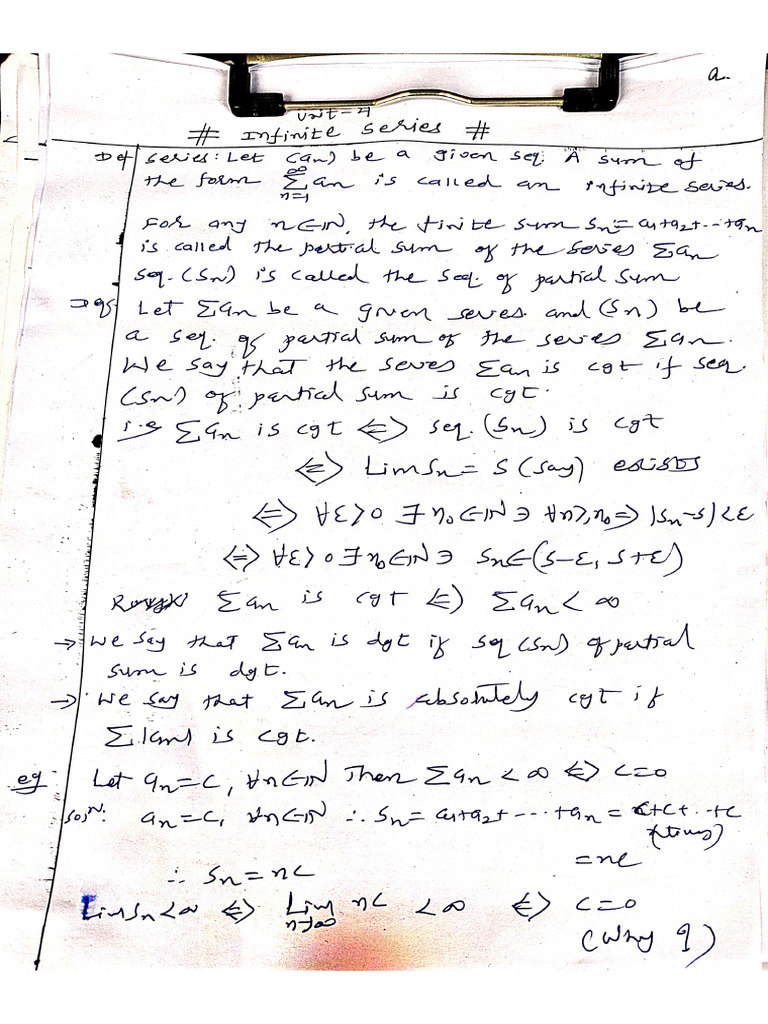 a.
Unit-4
# Infinite Series #
Def Series: Let (an) be a given seq. A sum of
the form ∞∑n=1 an is called an infinite series.
For any n∈IN, the finite sum Sn = a1+a2+...+an
is called the partial sum of the series ∑an
seq. (Sn) is called the seq of partial sum
Let ∑an be a given series and (Sn) be
a seq. of partial sum of the series ∑an.
We say that the series ∑an is cgt if seq.
(Sn) of partial sum is cgt.
i.e ∑an is cgt ⇔ seq. (Sn) is cgt
⇔ Lim Sn = S (say) exists
⇔ ∀ε>0 ∃ n0∈IN ∋ ∀n≥n0 ⇒ |Sn-S|<ε
⇔ ∀ε>0 ∃ n0∈IN ∋ Sn∈(S-ε, S+ε)
∑an is cgt ⇔ ∑an < ∞
→ We say that ∑an is dgt if seq (Sn) of partial
sum is dgt.
→ We say that ∑an is absolutely cgt if
∑|an| is cgt.
eg Let an=c, ∀n∈IN Then ∑an < ∞ ⇔ c=0
SolN: an=c, ∀n∈IN ∴ Sn = a1+a2+...+an = c+c+..+c
(n times)
= nc
∴ Sn = nc
Lim Sn < ∞ ⇔ Lim n→∞ nc < ∞ ⇔ c=0
(Why ?)